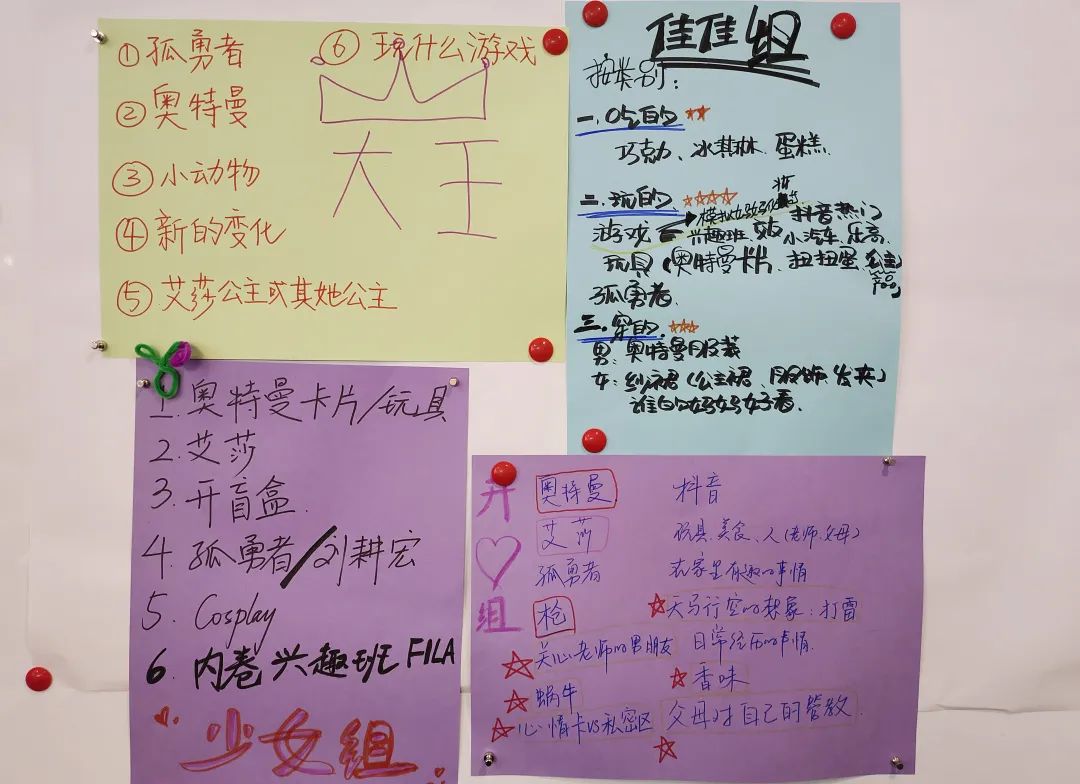 ①孤勇者
⑥玩什么游戏
②奥特曼
③小动物
④新的变化
⑤艾莎公主或其她公主
大王
佳佳组
按类别：
一.吃的
巧克力、冰淇淋.蛋糕.
二.玩的
游戏
兴趣班.
抖音热门
小汽车.乐高.
玩具(奥特曼卡片.扭扭蛋.公主
孤勇者.
三.穿的.
男:奥特曼服装
女:纱裙(公主裙.服饰.发夹)
谁的妈妈好看.
1.奥特曼卡片/玩具
2.艾莎
3.开盲盒.
4.孤勇者/刘耕宏
5.Cosplay
6.内卷兴趣班FILA
少女组
开♡组
奥特曼
艾莎
孤勇者
枪
关心老师的男朋友
蜗牛
心情卡vs私密区
抖音
玩具.美食、人(老师.父母)
在家里有趣的事情
天马行空的想象:打雷
日常经历的事情.
香味
父母对自己的管教.